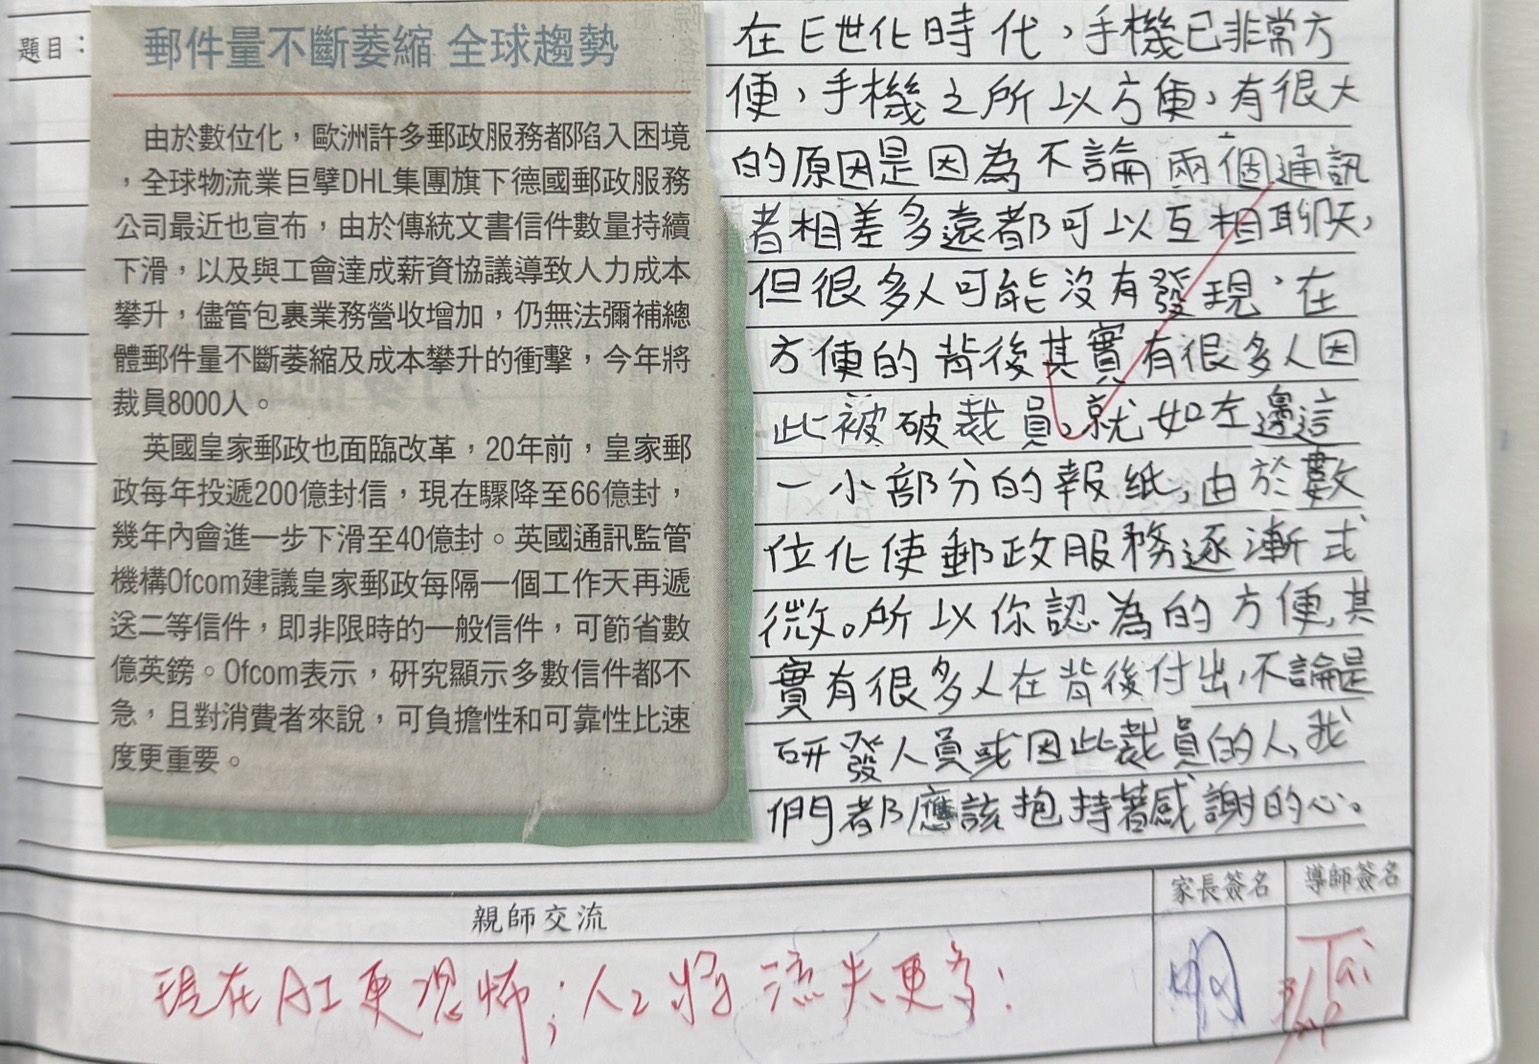 題目：
郵件量不斷萎縮 全球趨勢
由於數位化，歐洲許多郵政服務都陷入困境
，全球物流業巨擘DHL集團旗下德國郵政服務
公司最近也宣布，由於傳統文書信件數量持續
下滑，以及與工會達成薪資協議導致人力成本
攀升，儘管包裹業務營收增加，仍無法彌補總
體郵件量不斷萎縮及成本攀升的衝擊，今年將
裁員8000人。
英國皇家郵政也面臨改革，20年前，皇家郵
政每年投遞200億封信，現在驟降至66億封，
幾年內會進一步下滑至40億封。英國通訊監管
機構Ofcom建議皇家郵政每隔一個工作天再遞
送二等信件，即非限時的一般信件，可節省數
億英鎊。Ofcom表示，研究顯示多數信件都不
急，且對消費者來說，可負擔性和可靠性比速
度更重要。
在E世化時代，手機已非常方
便，手機之所以方便，有很大
的原因是因為不論兩個通訊
者相差多遠都可以互相聊天，
但很多人可能沒有發現，在
方便的背後其實有很多人因
此被破裁員，就如左邊這
一小部分的報紙，由於數
位化使郵政服務逐漸式
微。所以你認為的方便，其
實有很多人在背後付出，不論是
研發人員或因此裁員的人，我
們都應該抱持著感謝的心。
親師交流
家長簽名
導師簽名
現在AI更恐怖；人工將流失更多！
Tai